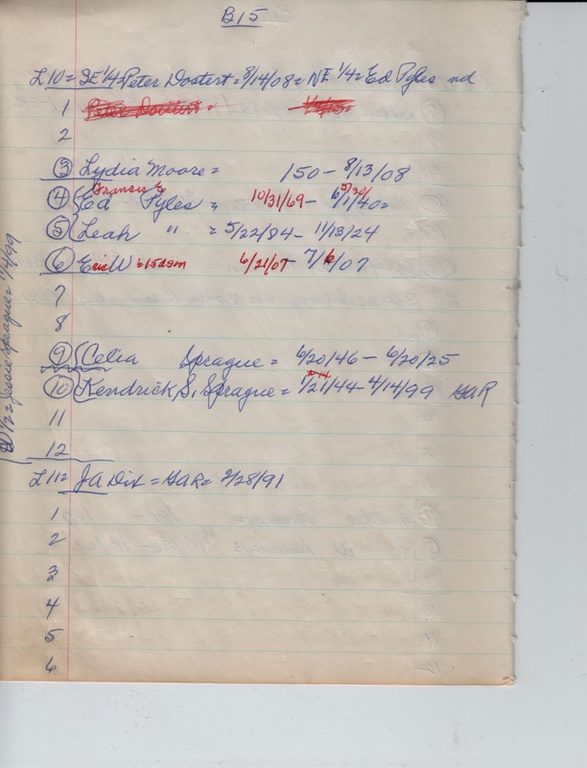 B15
L10 = SE 1/4 = Peter Dostert = 8/14/08 = NE 1/4 = Ed Pyles nd
1 Peter Dostert =
2
3 Lydia Moore = 150 - 8/13/08
Francis E
4 Ed Pyles = 10/31/69 - 6/1/40 = 5/30/
5 Leah " = 5/22/84 - 11/13/24
6 Eric W 6/21/07 - 7/6/07
7
8
9 Celia Sprague = 6/20/46 - 6/20/25
10 Kendrick S. Sprague = 1/21/44 - 4/14/99 GAR
11
12
W 1/2 = Jesse Sprague = 1/4/99
L11 = JA Dix = GAR = 2/28/91
1
2
3
4
5
6